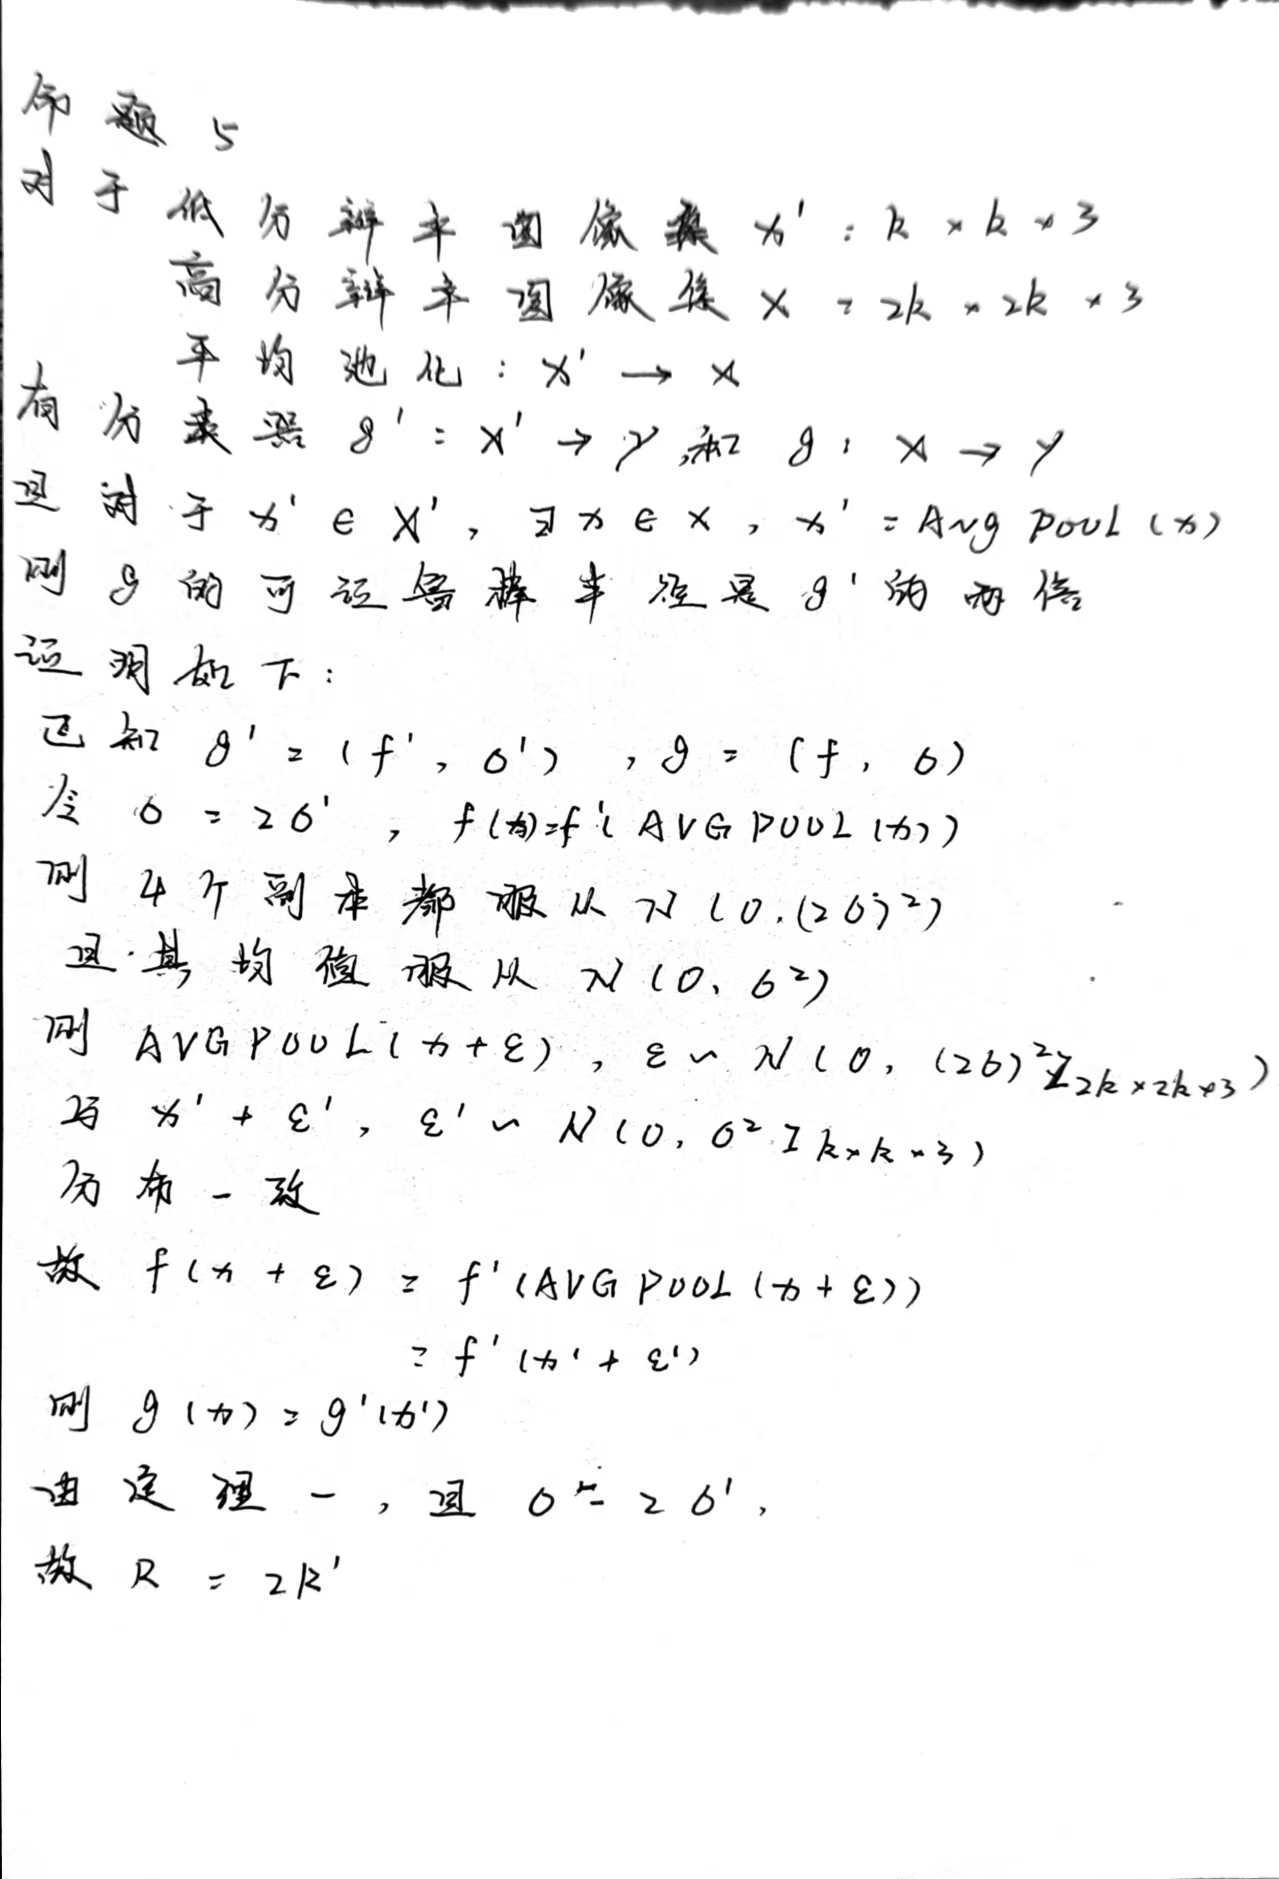 命题 5
对于低分辨率图像集 x' : k × k × 3
高分辨率图像集 X : 2k × 2k × 3
平均池化 : x' → x
有分类器 g' : X' → Y, 和 g : X → Y
且对于 x' ∈ X', ∃ x ∈ X, x' = Avg POOL (x)
则 g 的可证鲁棒半径是 g' 的两倍
证明如下:
已知 g' = (f', σ'), g = (f, σ)
令 σ = 2σ', f(x)=f'( AVG POOL (x))
则 4个副本都服从 N (0, (2σ)²)
且其均值服从 N (0, σ²)
则 AVG POOL (x+ε), ε ~ N (0, (2σ)² I 2k×2k×3)
与 x' + ε', ε' ~ N (0, σ² I k×k×3)
分布一致
故 f(x + ε) = f'(AVG POOL (x + ε))
= f'(x' + ε')
则 g(x) = g'(x')
由定理一, 且 σ = 2σ',
故 R = 2R'